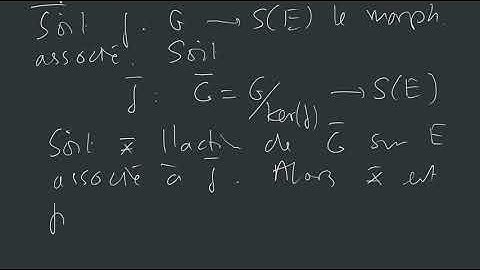 Soit f : G → S(E) le morph.
associé. Soit
f̄ : Ḡ = G/ker(f) → S(E)
Soit x̄ l'action de Ḡ sur E
associé à f̄. Alors x̄ est
f